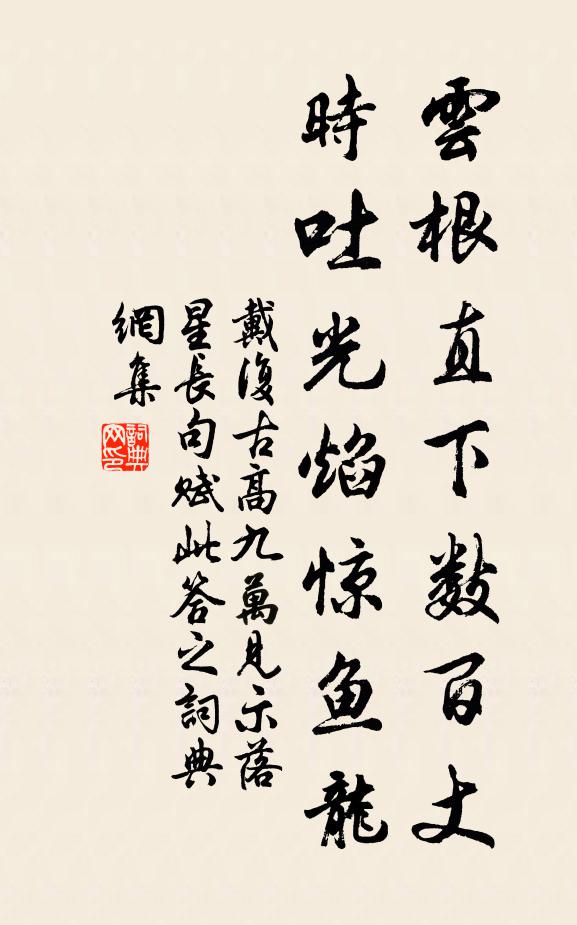 雲根直下数百丈
時吐光焰惊鱼龍
戴復古高九萬見示落
星長句賦此答之詞典
網集
詞典网印